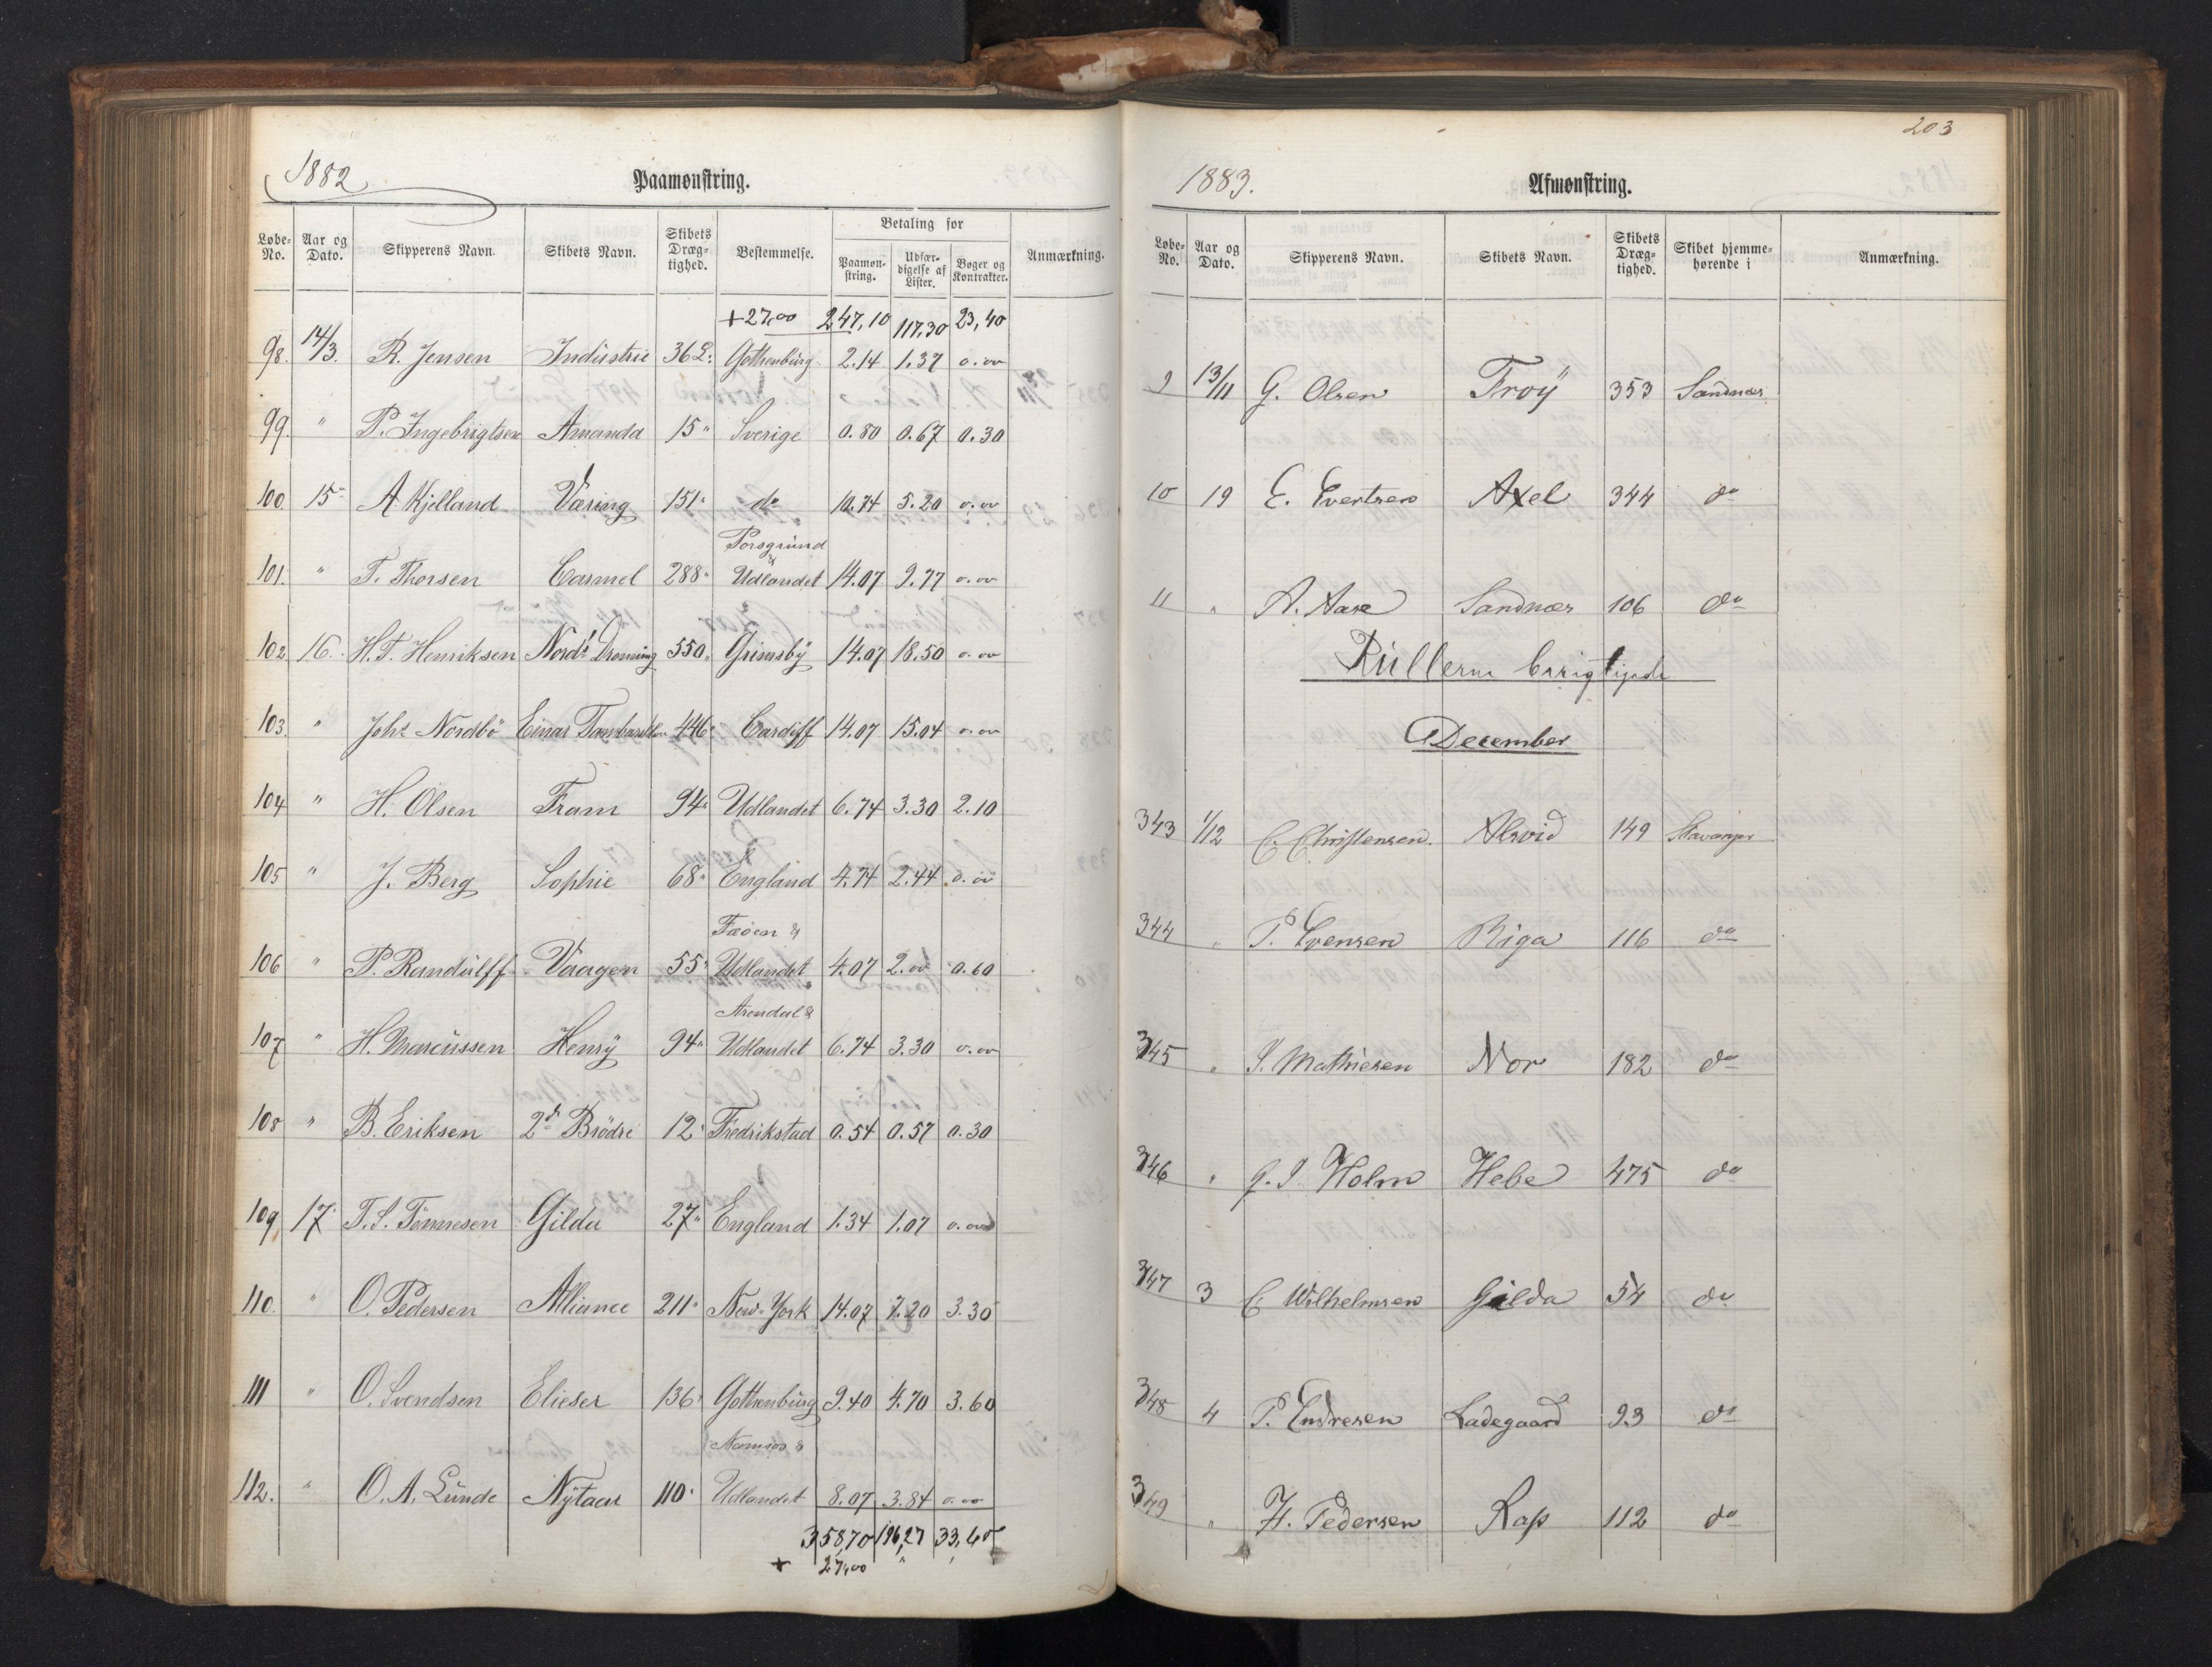 1882
Paamønstring.
Løbe-No. Aar og Dato. Skipperens Navn. Skibets Navn. Skibets Dræg-tighed. Bestemmelse. Betaling for Paamøn-string. Udfær-digelse af Lister. Bøger og Kontrakter. Anmærkning.
+27,00 247,10 117,30 23,40
98. 14/3. R. Jensen Industrie 36 Gothenburg 2.14 1.37 0.00
99. " P. Ingebrigtsen Amanda 15 " Sverige 0.80 0.67 0.30
100 15 A. Kjelland Væring 151 do 10.74 5.20 0.00
Porsgrund &
101. " T. Thorsen Carmel 288 " Udlandet 14.07 9.77 0.00
102 16. H.T. Henriksen Nords Dronning 550 " Grimsby 14.07 18.50 0.00
103. " Johs Nordbö Einar Tambarskl. 446 Cardiff 14.07 15.04 0.00
104 " H. Olsen Fram 94 Udlandet 6.74 3.30 2.10
105 " J. Berg Sophie 68 " England 4.74 2.44 0.00
Faöen &
106 " P. Randulff Vaagen 55 " Udlandet 4.07 2.00 0.60
Arendal &
107 " H. Marcussen Henry 94 " Udlandet 6.74 3.30 0.00
108 " B. Eriksen 2de Brödre 12 Fredrikstad 0.54 0.57 0.30
109, 17 T.S. Tönnesen Gilda 27 " England 1.34 1.07 0.00
110. " O. Pedersen Alliance 211 " New-York 14.07 7.20 3.30
111 " O. Svendsen Elieser 136 Gothenburg 9.40 4.70 3.60
Namsos &
112. " O. A. Lunde Nytaar 110 Udlandet 8.07 3.84 0.00
358,70 196,27 33,60
+ 27,00
203
1883.
Afmønstring.
Løbe-No. Aar og Dato. Skipperens Navn. Skibets Navn. Skibets Dræg-tighed. Skibet hjemme-hørende i Anmærkning.
9 13/11 G. Olsen Troy 353 Sandnæs
10 19 E. Evertsen Axel 344 do
11 " A. Aase Sandnæs 106 do
Rullerne berigtigede
December
343 1/12 C. Christensen. Alsvid 149 Stavanger
344 " P. Svensen Riga 116 do
345 " I. Mathiesen Nor 182 do
346 " G. I. Holm Hebe 475 do
347 3 C Wilhelmsen Gilda 54 do
348 4 P. Endresen Ladegaard 93 do
349 " H. Pedersen Rap 112 do